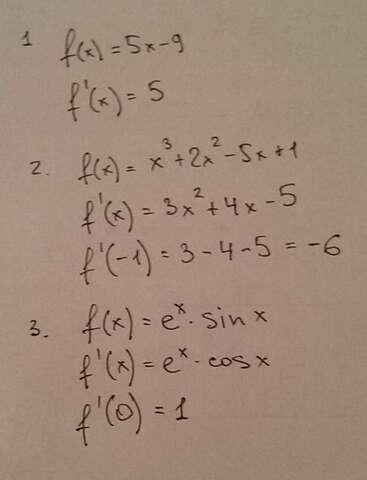 1 f(x) = 5x-9
f'(x) = 5
2. f(x) = x³+2x²-5x+1
f'(x) = 3x²+4x-5
f'(-1) = 3-4-5 = -6
3. f(x) = eˣ·sinx
f'(x) = eˣ·cosx
f'(0) = 1